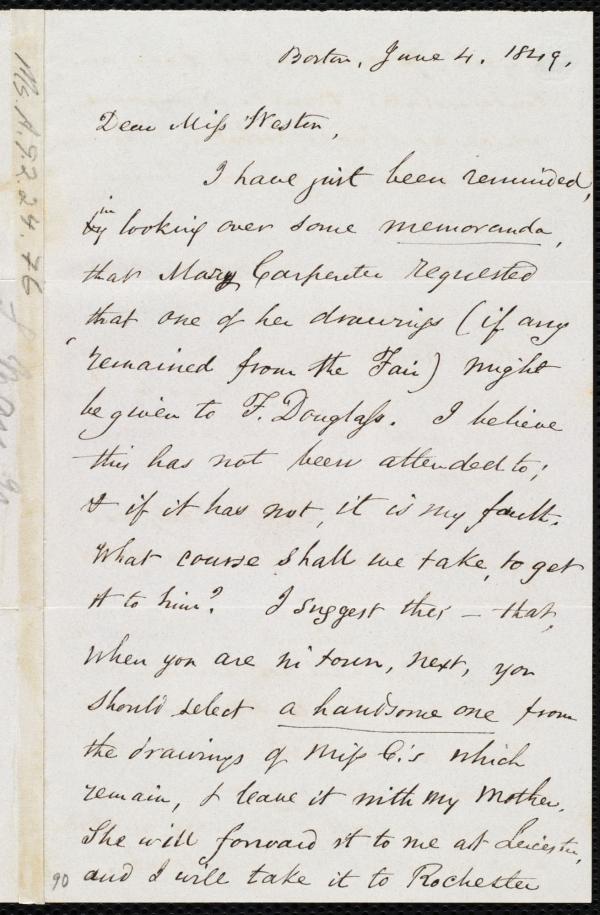 Boston, June 4. 1849.
Dear Miss Weston,
I have just been reminded,
in
by looking over some memoranda,
that Mary Carpenter requested
that one of her drawings (if any
remained from the Fair) might
be given to F. Douglass. I believe
this has not been attended to;
& if it has not, it is my fault.
What course shall we take, to get
it to him? I suggest this – that,
when you are in town, next, you
should select a handsome one from
the drawings of Miss C.'s which
remain, & leave it with my Mother.
She will forward it to me at Leicester,
and I will take it to Rochester
90
Ms.A.9.2.24.76